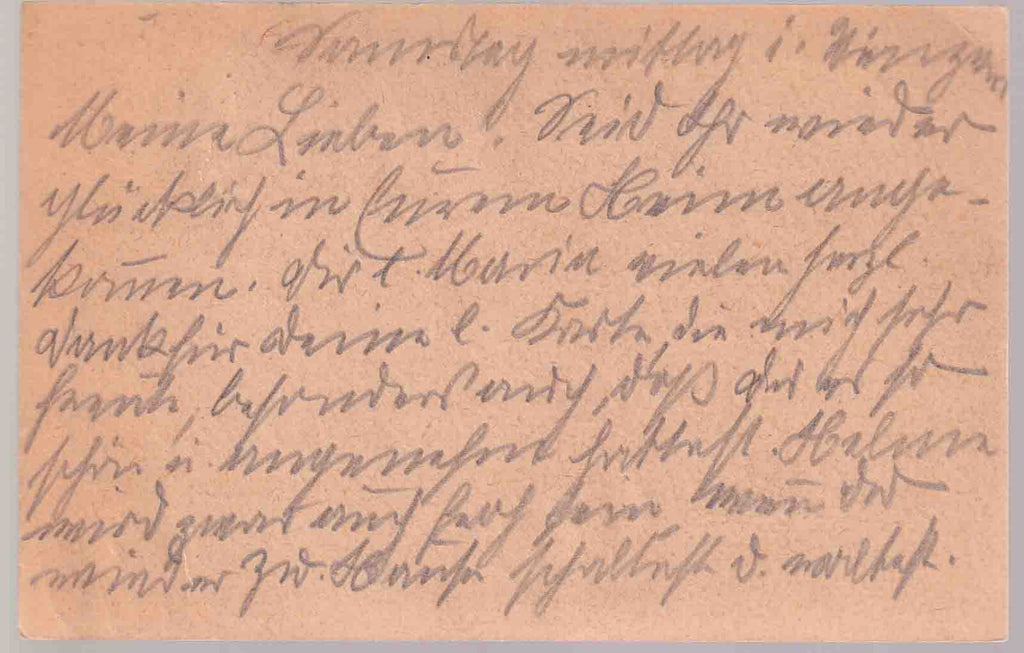 Samstag mittag i. Binzen
Meine Lieben! Seid Ihr wieder
glücklich in Eurem Heim ange-
kom̄en. Dir l. Maria vielen herzl.
Dank für Deine l. Karte, die mich sehr
freute, besonders auch, daß Du es so
schön u. angenehm hattest. Helene
wird zwar auch froh sein wen̄ Du
wieder zu Hause schaltest u. waltest.